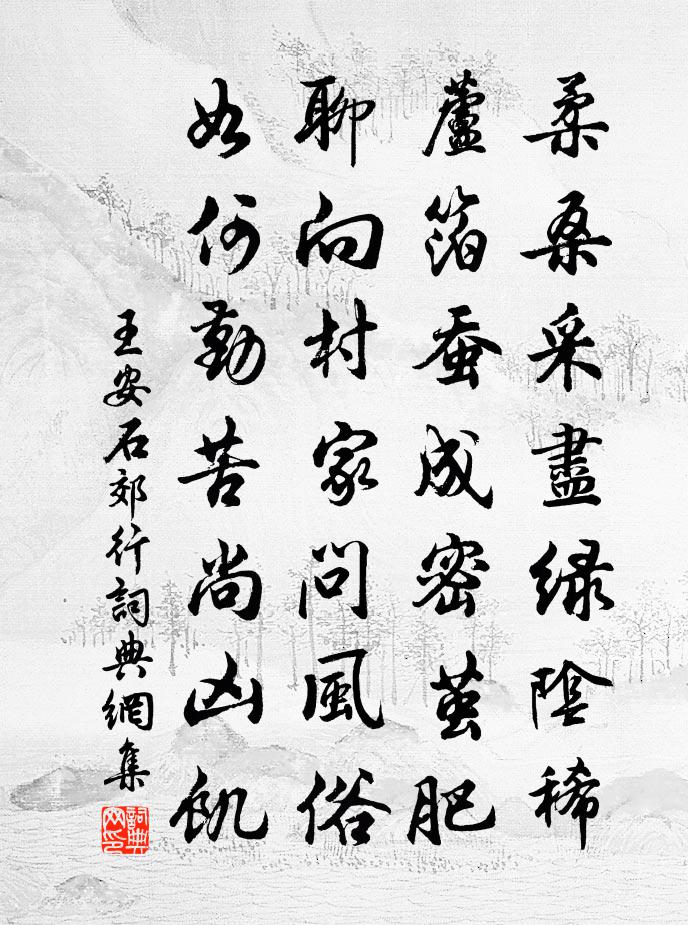 柔桑采盡绿陰稀
蘆箔蚕成密茧肥
聊向村家問風俗
如何勤苦尚凶飢
王安石郊行詞典網集
詞典网印